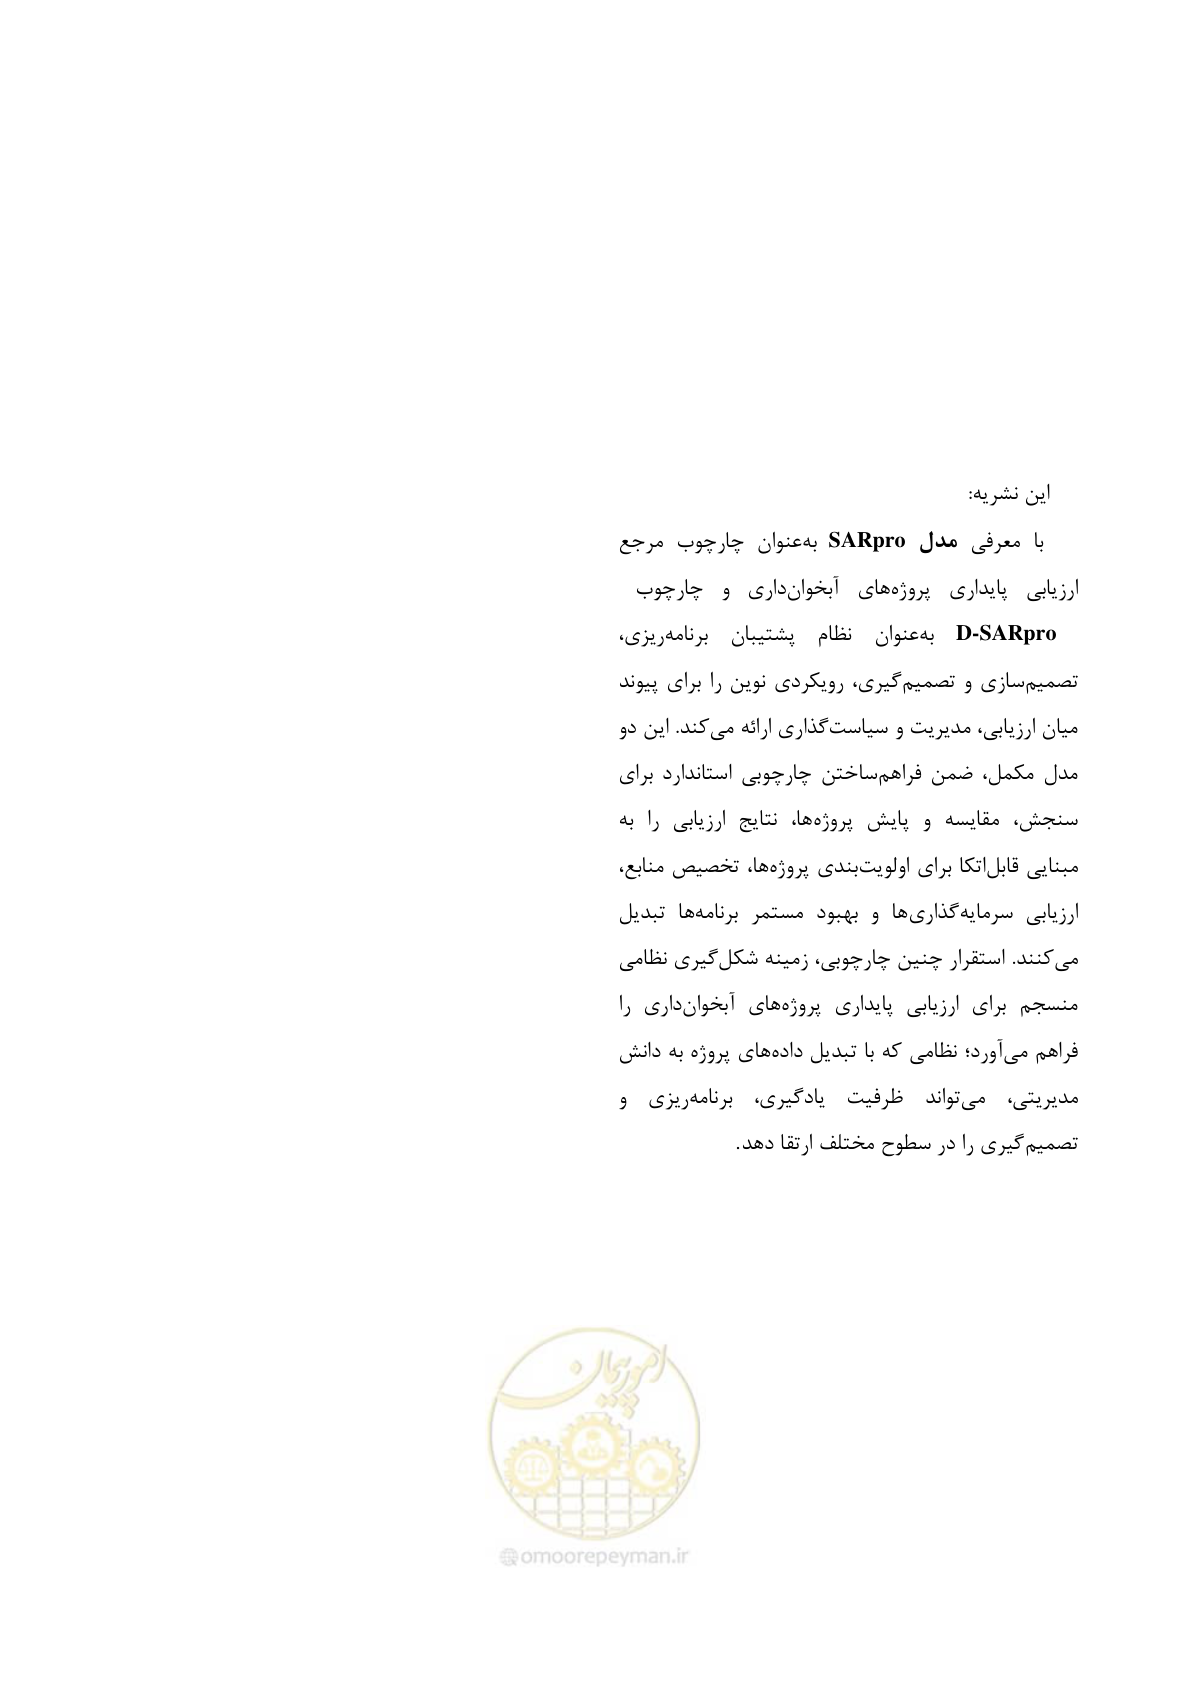 این نشریه:
با معرفی مدل SARpro به‌عنوان چارچوب مرجع
ارزیابی پایداری پروژه‌های آبخوان‌داری و چارچوب
D-SARpro به‌عنوان نظام پشتیبان برنامه‌ریزی،
تصمیم‌سازی و تصمیم‌گیری، رویکردی نوین را برای پیوند
میان ارزیابی، مدیریت و سیاست‌گذاری ارائه می‌کند. این دو
مدل مکمل، ضمن فراهم‌ساختن چارچوبی استاندارد برای
سنجش، مقایسه و پایش پروژه‌ها، نتایج ارزیابی را به
مبنایی قابل‌اتکا برای اولویت‌بندی پروژه‌ها، تخصیص منابع،
ارزیابی سرمایه‌گذاری‌ها و بهبود مستمر برنامه‌ها تبدیل
می‌کنند. استقرار چنین چارچوبی، زمینه شکل‌گیری نظامی
منسجم برای ارزیابی پایداری پروژه‌های آبخوان‌داری را
فراهم می‌آورد؛ نظامی که با تبدیل داده‌های پروژه به دانش
مدیریتی، می‌تواند ظرفیت یادگیری، برنامه‌ریزی و
تصمیم‌گیری را در سطوح مختلف ارتقا دهد.
امور پیمان
@omoorepeyman.ir